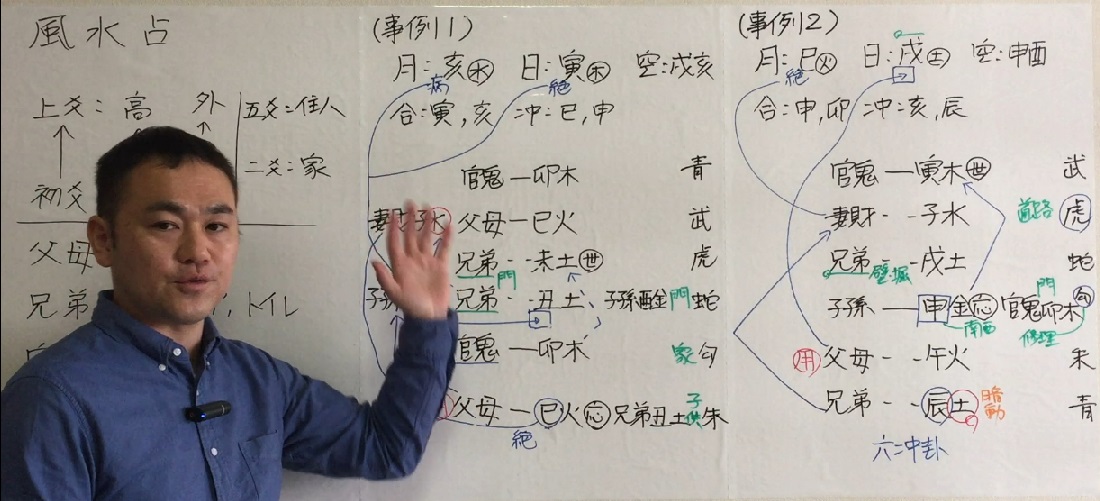 風水占
上爻：高 外
↑ ↑
初爻
五爻＝住人
二爻＝家
父母
兄弟 トイレ
(事例11)
月：亥㊌ 日：寅㊍ 空：戌亥
病 絶
合：寅,亥 冲：巳,申
官鬼 ― 卯木 青
妻財子水 父母 ― 巳火 武
兄弟 - - 未土㊂世 虎
門
子孫 兄弟 - - 丑土 子孫酉金 門 蛇
官鬼 ― 卯木 家 勾
父母 ― 巳火 応 兄弟丑土 子供 朱
絶
(事例12)
月：巳㊋ 日：戌㊏ 空：申酉
絶
合：申,卯 冲：亥,辰
官鬼 ― 寅木 世 武
妻財 - - 子水 道路 虎
兄弟 - - 戌土 蛇
子孫 ― 申金 応 官鬼卯木 勾
門
南西 修理
用 父母 - - 午火 朱
兄弟 - - 辰土 暗動 青
六冲卦